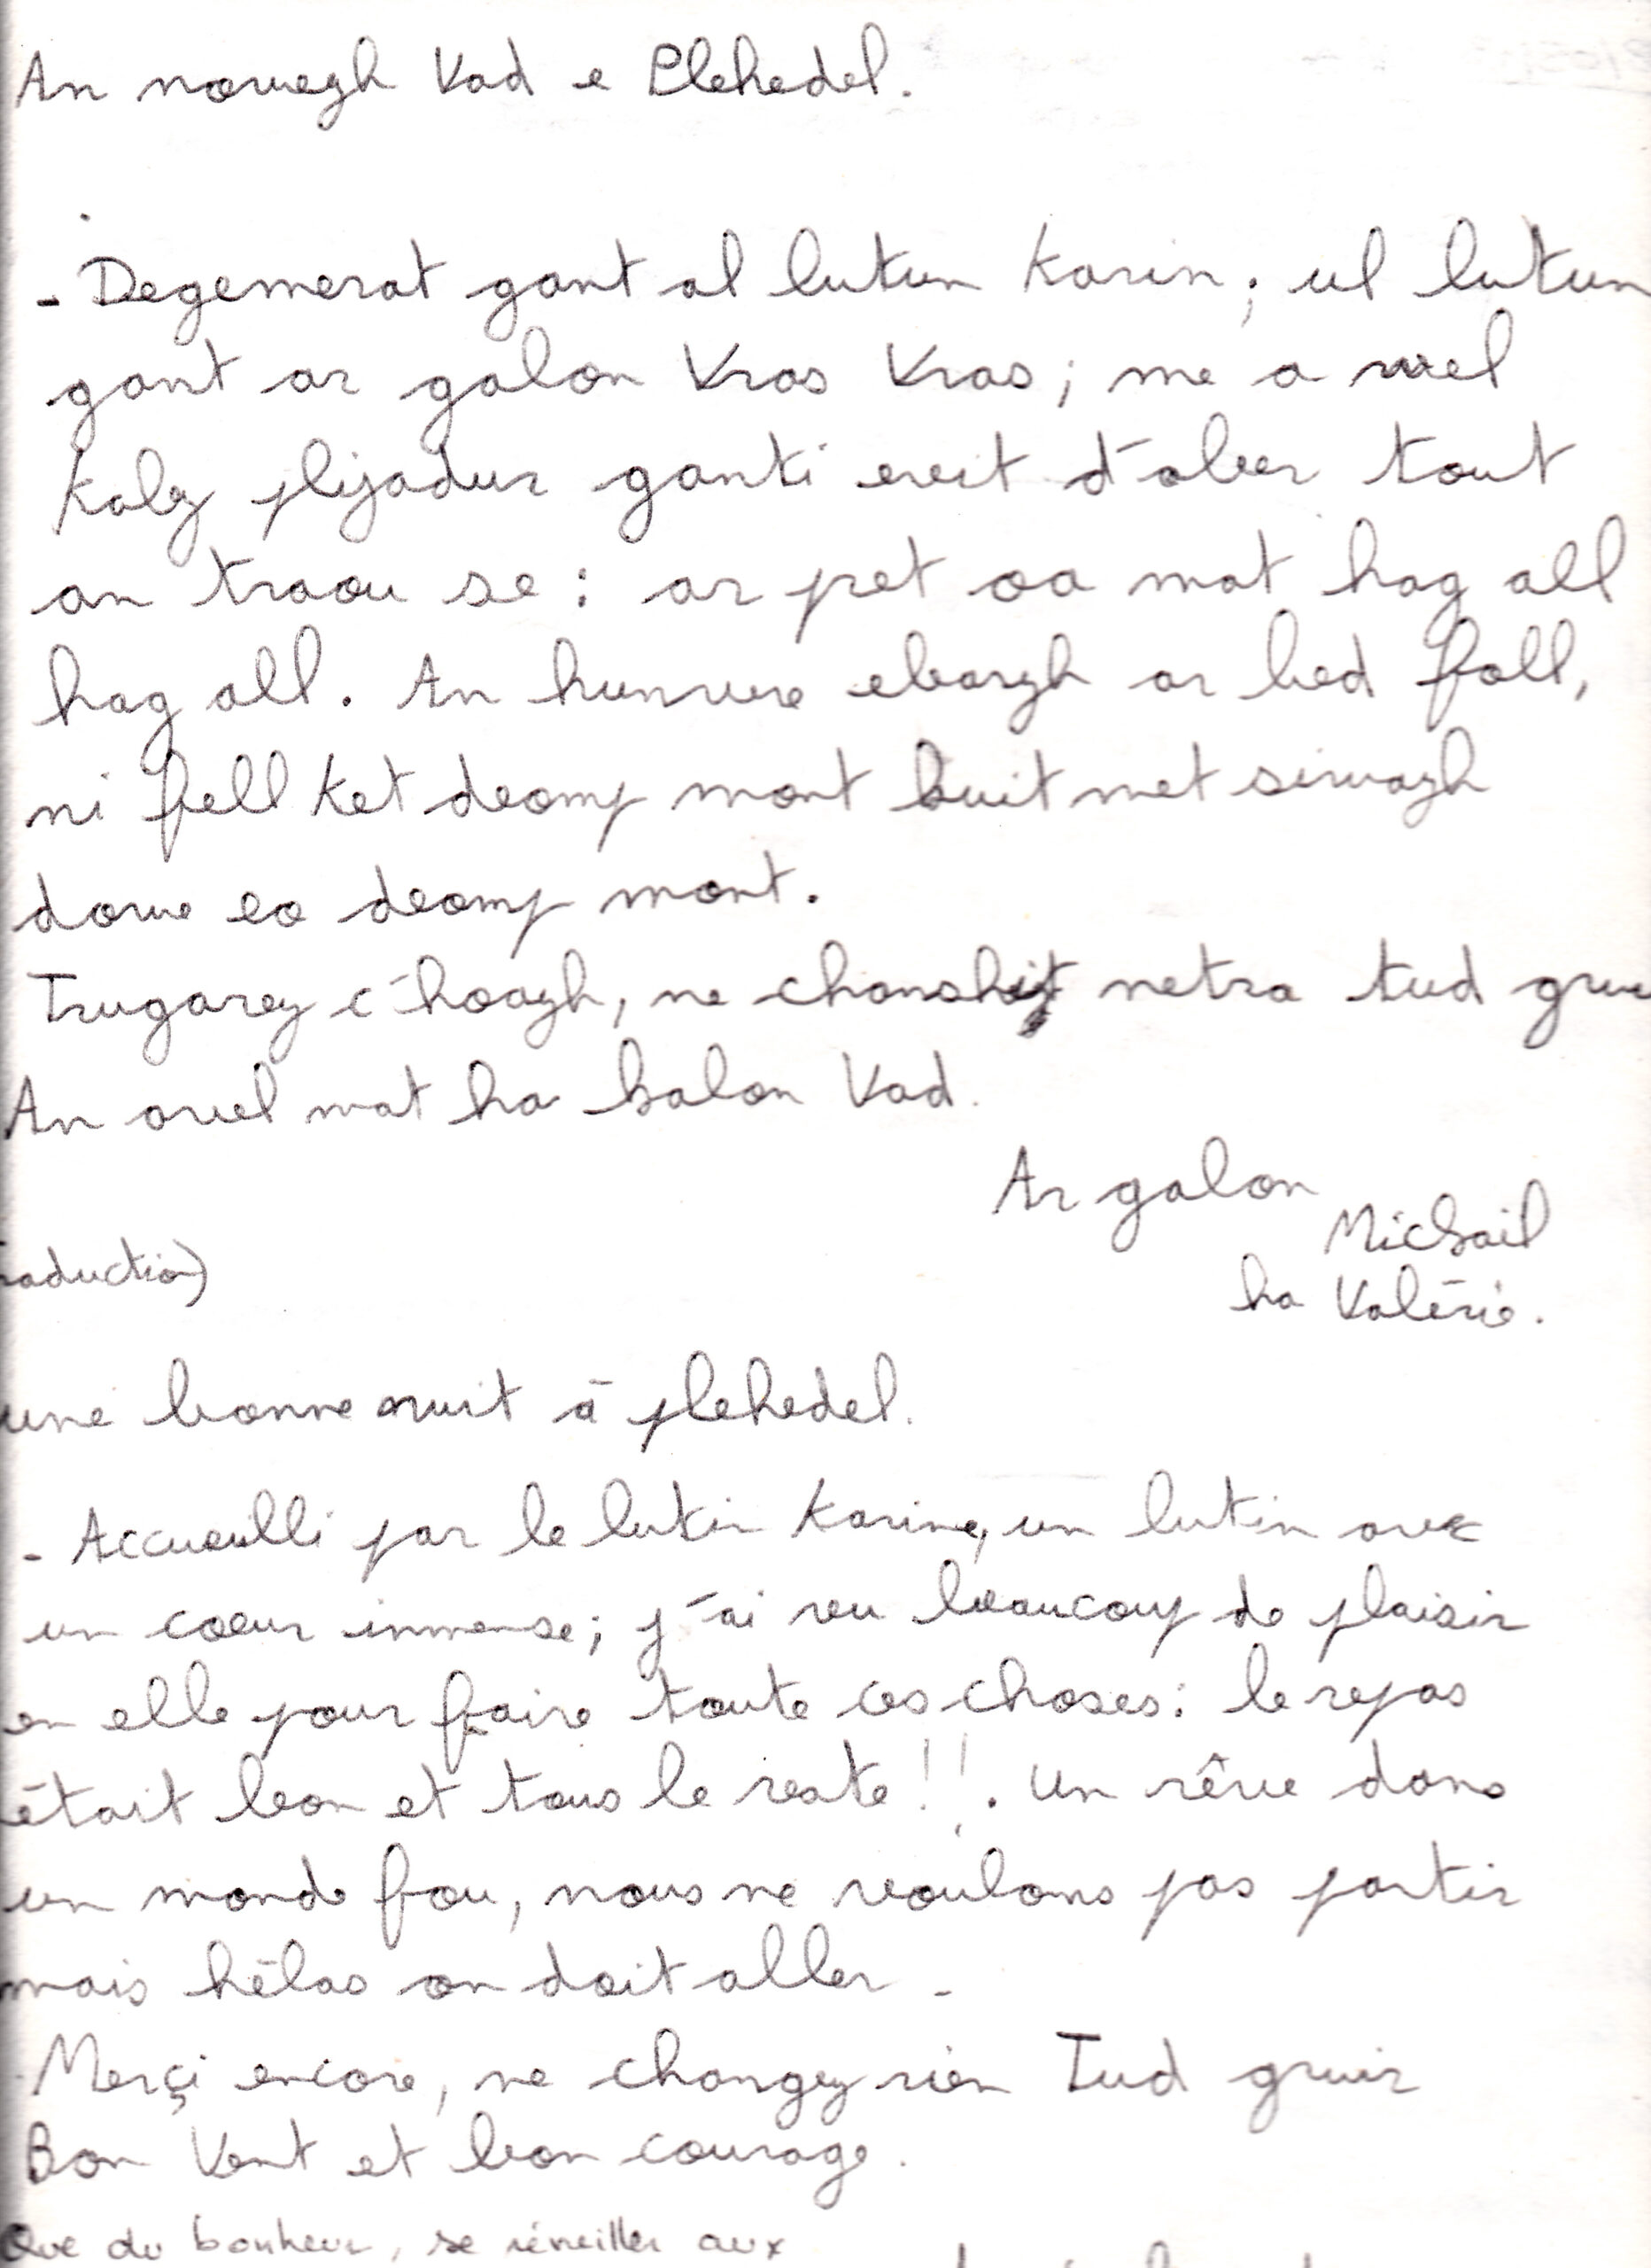 An nowegh Vad e Plehedel.
- Degemerat gant al lutun Karin; ul lutun
gant ar galon Vras Vras; me a wel
kalz plijadur ganti evit d'ober tout
an traou se : ar pet oa mat hag all
hag all. An hunvre ebarzh ar bed foll,
ni fell ket deomp mont kuit met siwazh
dowe eo deomp mont.
Trugarez c'hoazh, ne netra tud gru
An avel mat ha kalon Vad.
Ar galon
Michail
ha Valérie.
raduction)
une bonne nuit à plehedel.
- Accueilli par le lutin Karine, un lutin avec
un coeur immense; j'ai vu beaucoup de plaisir
en elle pour faire toute ces choses: le repas
était bon et tous le reste !! . Un rêve dans
un monde fou, nous ne voulons pas partir
mais hélas on doit aller -
Merçi encore, ne changez rien Tud gwir
Bon Vent et bon courage.
Que du bonheur, se réveiller aux